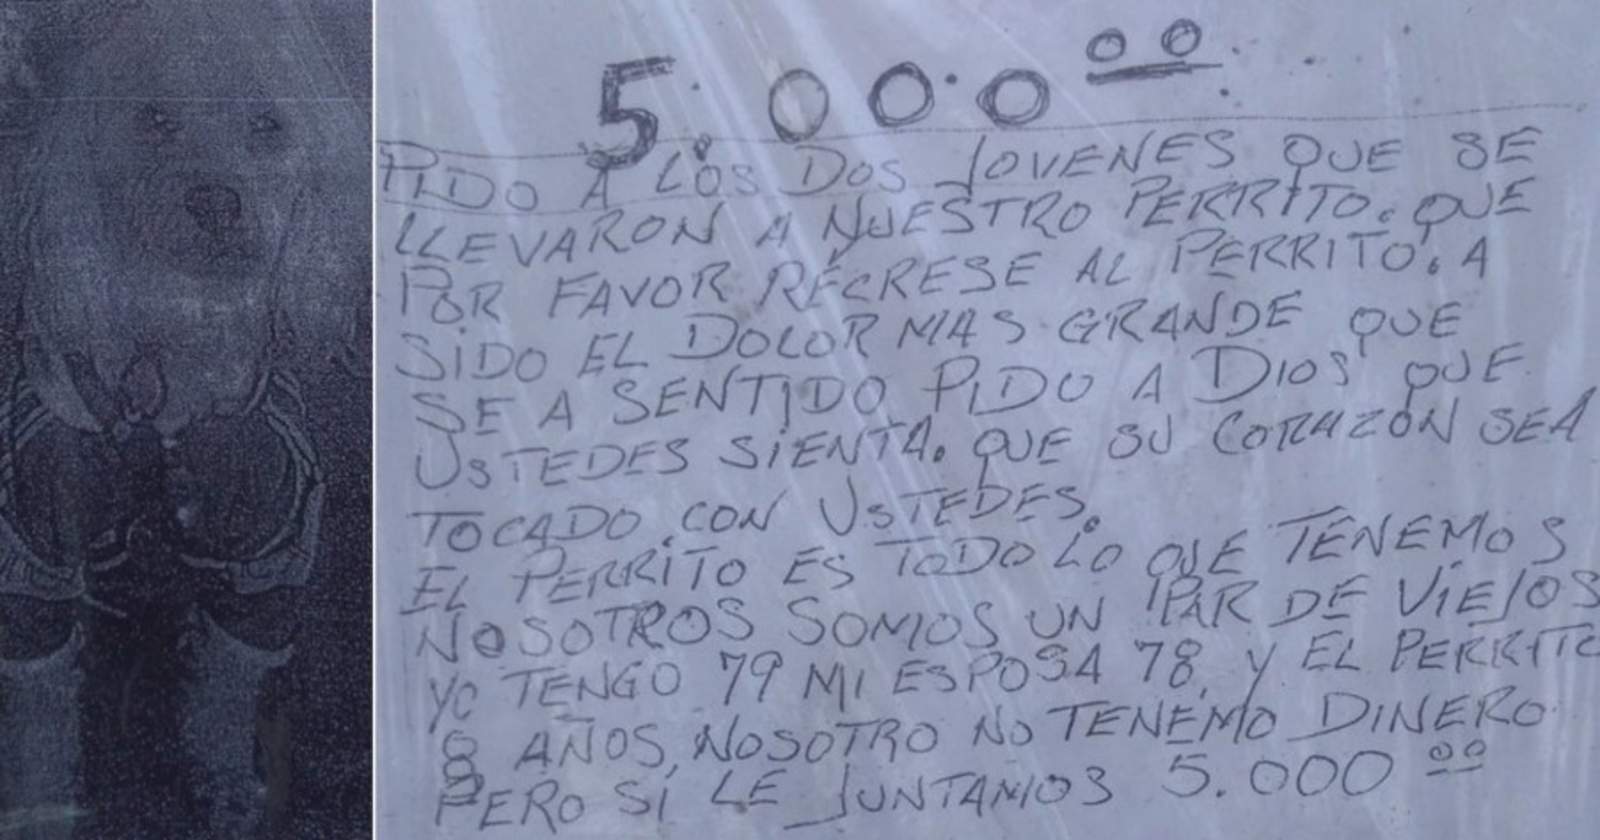 5.000 00
PIDO A LOS DOS JOVENES QUE SE
LLEVARON A NUESTRO PERRITO. QUE
POR FAVOR REGRESE AL PERRITO. A
SIDO EL DOLOR MAS GRANDE QUE
SE A SENTIDO PIDO A DIOS QUE
USTEDES SIENTA. QUE SU CORAZON SEA
TOCADO. CON USTEDES.
EL PERRITO ES TODO LO QUE TENEMOS
NOSOTROS SOMOS UN PAR DE VIEJOS
YO TENGO 79 MI ESPOSA 78, Y EL PERRITO
8 AÑOS, NOSOTRO NO TENEMO DINERO
PERO SI LE JUNTAMOS 5.000 00